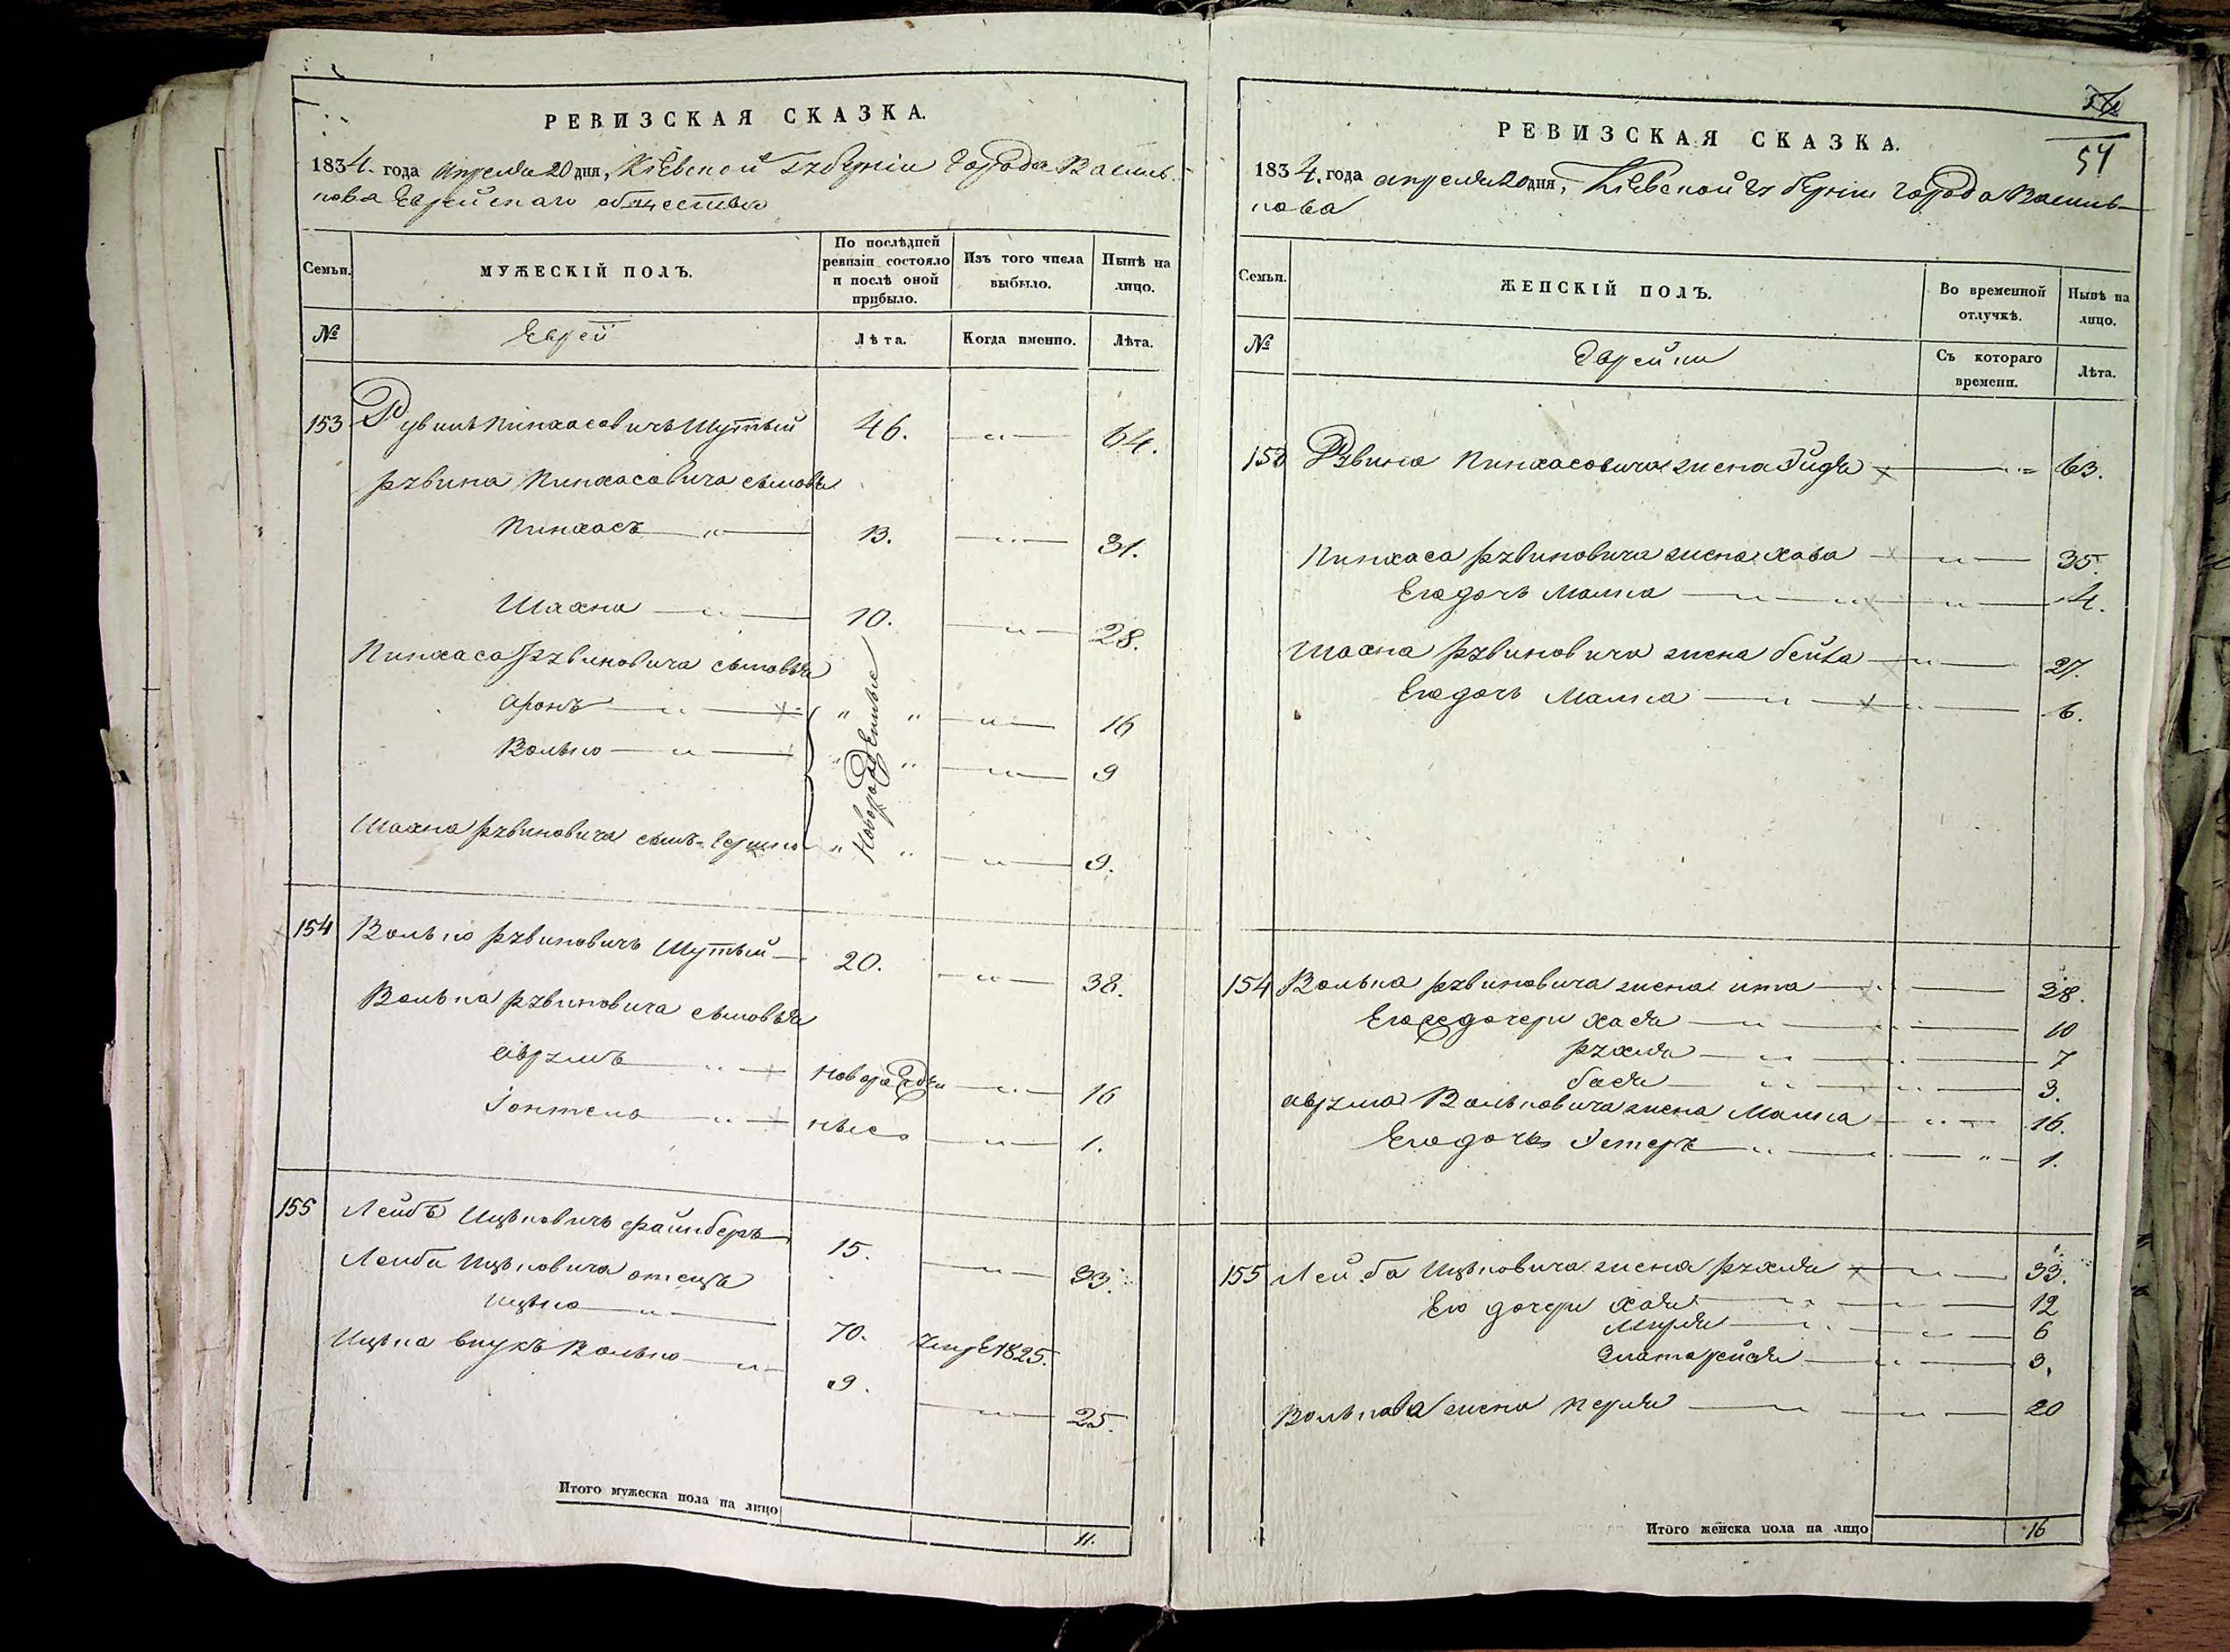 РЕВИЗСКАЯ СКАЗКА.
1834. года Апреля 20 дня, Кіевской Губерніи Города Василь-
кова Еврейскаго общества
Семьи.
МУЖЕСКІЙ ПОЛЪ.
По послѣдней ревизіи состояло и послѣ оной прибыло.
Изъ того числа выбыло.
Нынѣ на лицо.
№
Еврей
Лѣта.
Когда именно.
Лѣта.
153 Рувинъ Пинхасовичъ Шутый 46. —„— 64.
Рувина Пинхасовича сыновья
Пинхасъ —„— 13. —„— 31.
Шахна —„— 10. —„— 28.
Пинхаса Рувиновича сыновья
Аронъ —„— „ „ —„— 16
Волько —„— „ „ —„— 9
Новорожденные
Шахна Рувиновича сынъ Гершко „ „ —„— 9.
154 Волько Рувиновичъ Шутый — 20. —„— 38.
Волька Рувиновича сыновья
Аврумъ —„— новорожден —„— 16
—„— ные —„— 1.
155 Лейбъ Ицьковичъ Файнберъ 15. —„— 33.
Лейба Ицьковича отецъ
Ицько —„— 70. Умре 1825.
Ицька внукъ Волько —„— 9. —„— 25.
Итого мужеска пола на лицо
11.
54
54
РЕВИЗСКАЯ СКАЗКА.
1834. года апреля 20 дня, Кіевской Губерніи города Василь-
кова
Семьи.
ЖЕНСКІЙ ПОЛЪ.
Во временной отлучкѣ.
Нынѣ на лицо.
№
Еврейки
Съ котораго времени.
Лѣта.
153 Рувина Пинхасовича жена — 63.
Пинхаса Рувиновича жена Хава —„— 35.
Его дочь Малка —„— 4.
Шахна Рувиновича жена Бейла —„— 27.
Его дочь Малка —„— 6.
154 Волька Рувиновича жена Ита —„— 38.
Его же дочери Хася —„— 10
Рухля —„— 7
Бася —„— 3.
Аврума Вольковича жена Малка —„— 16.
Его дочь Естеръ —„— 1.
155 Лейба Ицьковича жена Рухля —„— 33.
Его дочери Хая —„— 12
Мирля —„— 6
Злата рейзя —„— 3.
Волькова жена Перля —„— 20
Итого женска пола на лицо
16